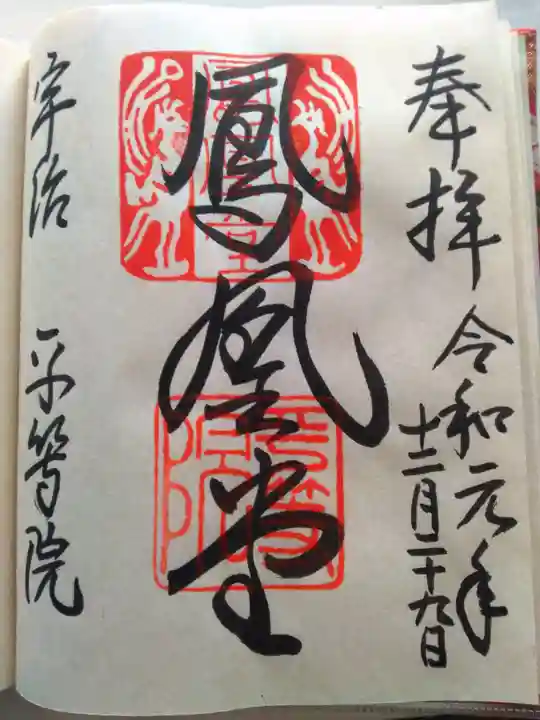 奉拝
令和元年
十二月二十九日
鳳凰堂
宇治 平等院